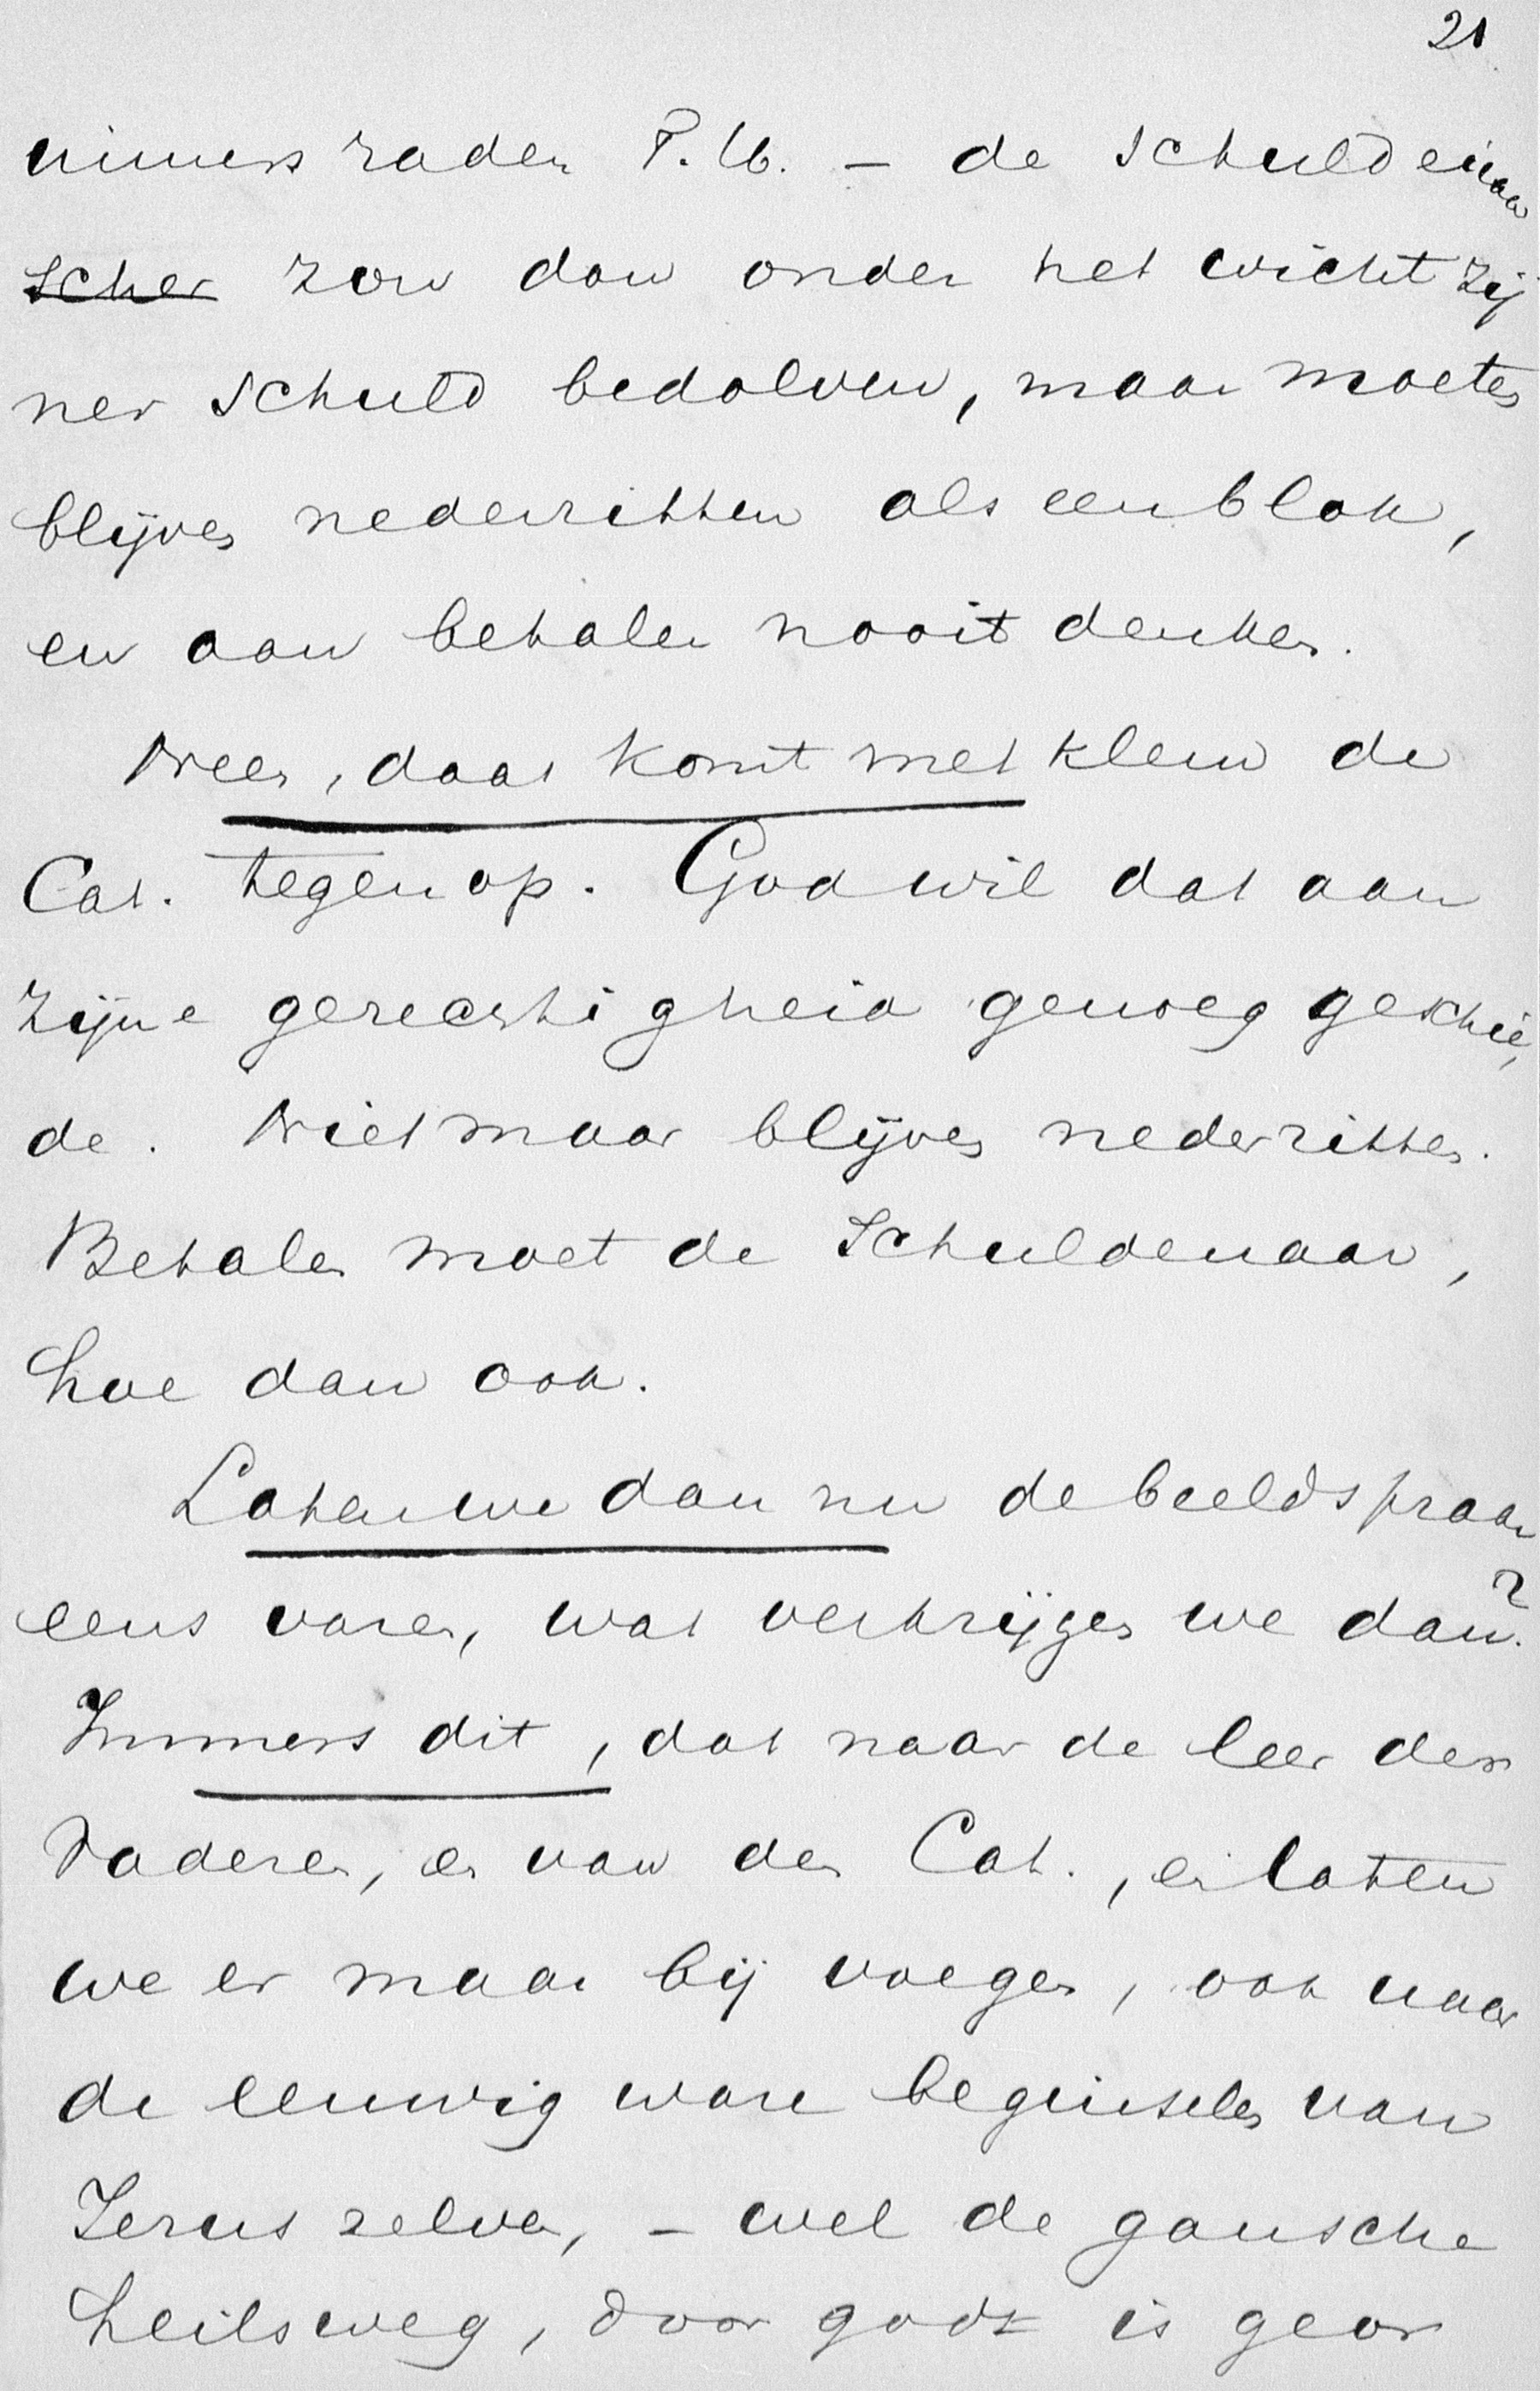 21
nimmer raden T. U. – de schuldenaar
scher zou dan onder het wicht zij
ner schuld bedolven, maar moeten
blijven nederzitten als een blok,
en aan betalen nooit denken.
Neen, daar komt met klem de
Cat. tegen op. God wil dat aan
zijne gerechtigheid genoeg geschie,
de. Niet maar blijven nederzitten.
Betalen moet de Schuldenaar,
hoe dan ook.
Laten we dan nu de beeldspraak
eens varen, wat verkrijgen we dan?
Immers dit, dat naar de leer der
Vaderen, en van den Cat., en laten
we er maar bij voegen, ook naar
de eeuwig ware beginselen van
Jezus zelven, – wel de gansche
heilsweg, door God is geor